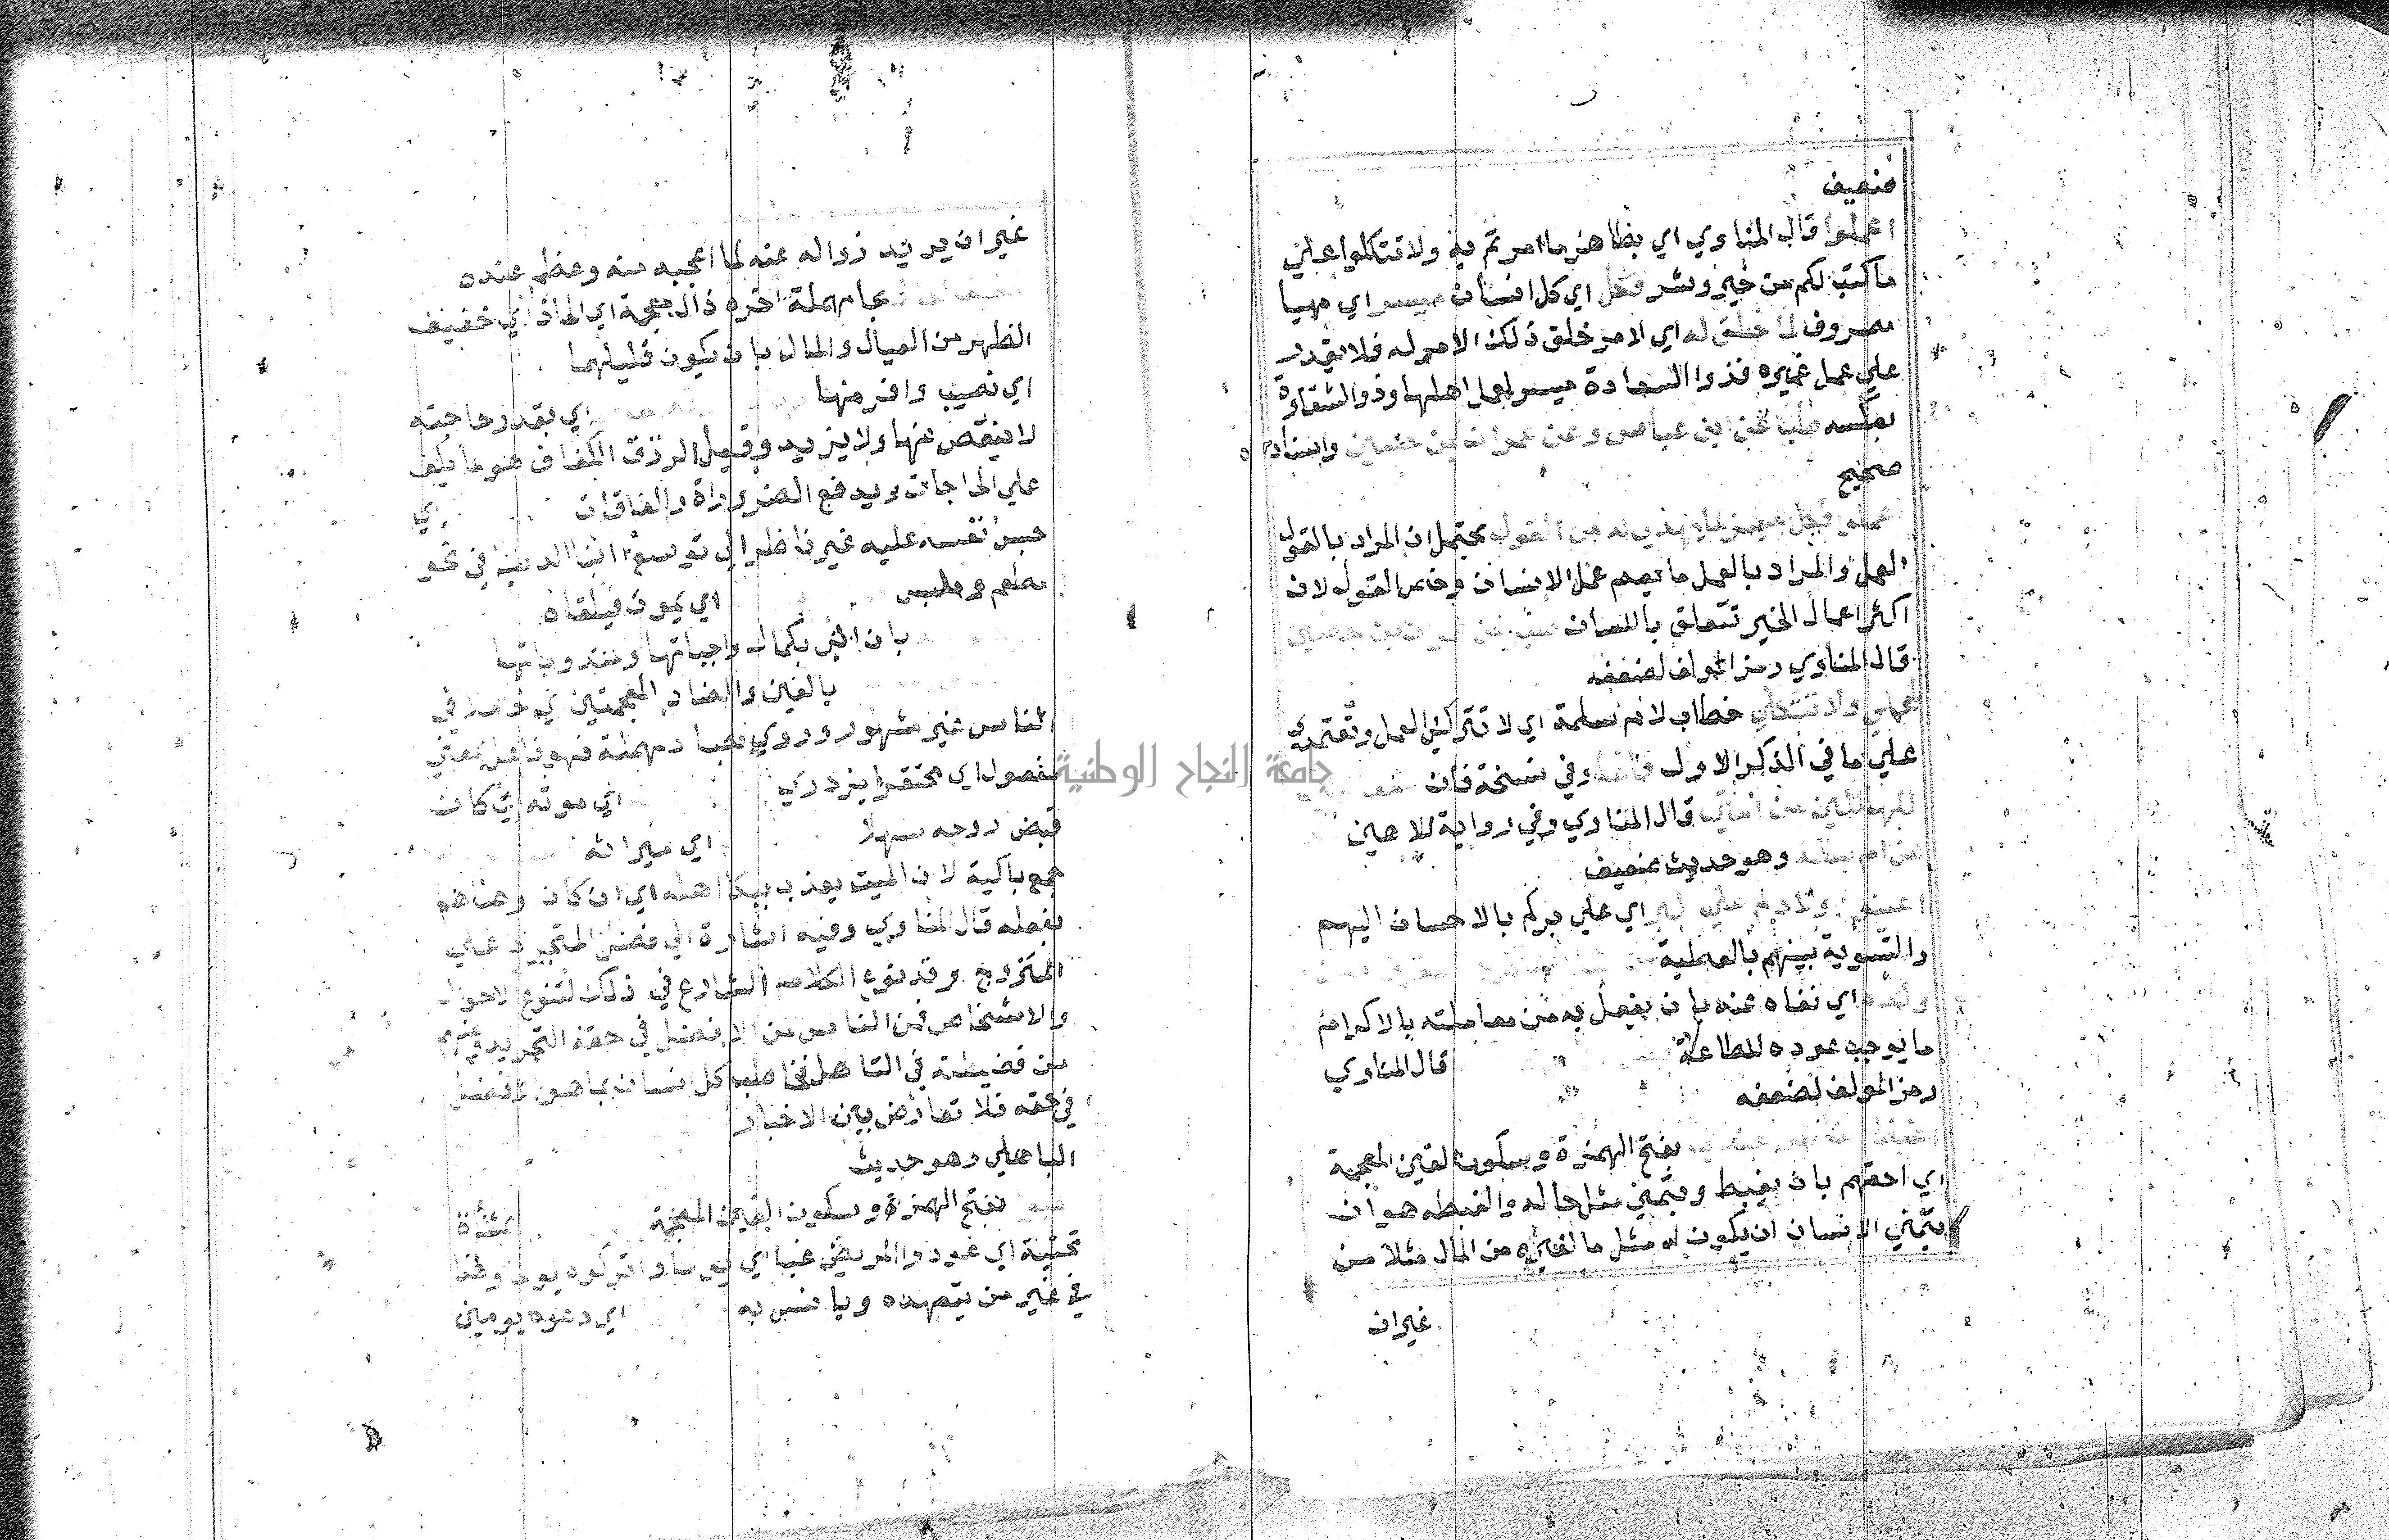 ضعيف
اعملوا قال المناوي اي بظاهر ما امرتم به ولا تتكلوا علي
ما كتب لكم من خير وشر فكل اي كل انسان ميسر اي مهيا
مصروف لما خلق له اي لامر خلق ذلك الامر له فلا يقدر
علي عمل غيره فذوا السعادة ميسر لعمل اهلها وذو الشقاوة
بعكسه طب عن ابن عباس وعن عمران بن حصين واسناده
صحيح
فكل ميسر لما يهدي له من القول يحتمل ان المراد بالقول
العمل والمراد بالعمل ما يعم عمل الانسان وخاص القول لان
اكثر اعمال الخير تتعلق باللسان
قال المناوي رمز المولف لضعفه
ولا تتكلي خطاب لام سلمة اي لا تتركي العمل وتعتمدي
علي ما في الذكر الاول وفي نسخة فان
من امتي قال المناوي وفي رواية للاهين
وهو حديث ضعيف
علي البر اي علي بركم بالاحسان اليهم
والتسوية بينهم بالعطية
اي نفاه عنه بان يفعل به من معاملته بالاكرام
ما يوجب عوده للطاعة قال المناوي
رمز المولف لضعفه
بفتح الهمزة وسكون الغين المعجمة
اي احقهم بان يغبط ويتمني مثل حاله والغبطه هو ان
يتمني الانسان ان يكون له مثل ما لغيره من المال مثلا من
غيران
جامعة النجاح الوطنية
غير ان يريد زواله عنه لما اعجبه منه وعظم عنده
بحا مهملة اخره ذال معجمة اي الحاذ اي خفيف
الظهر من العيال والمال بان يكون قليلهما
اي نصيب وافر منها اي بقدر حاجته
لا ينقص عنها ولا يزيد وقيل الرزق الكفاف هو ما يكف
علي الحاجات ويدفع الضرورات والفاقات اي
حبس نفسه عليه غير ناظر الي توسع ابنا الدنيا في نحو
مطعم وملبس اي يموت فيلقاه
بان اتي بكمال واجباتها ومندوباتها
بالغين والضاد المعجمتين اي خاملا في
الناس غير مشهور وروي بصاد مهملة فهو فاعل بمعني
مفعول اي محتقرا يزدري اي موته اي كان
قبض روحه سهلا اي ميراثه
جمع باكية لان الميت يعذب ببكا اهله اي ان كان
بفعله قال المناوي وفيه اشارة الي فضل المتجرد علي
المتزوج وقد نوع الكلام الشارع في ذلك لتنوع الاحوال
والاشخاص فمن الناس من الافضل في حقه التجريد ومنهم
من فضيلته في التاهل فخاطب كل انسان بما هو الافضل
في حقه فلا تعارض بين الاخبار
الباهلي وهو حديث
بفتح الهمزة وسكون الغين المعجمة
تحتية اي عودوا المريض غبا اي يوما واتركوه يوما وهذا
في غير من يتعهده ويانس به اي دعوه يومين